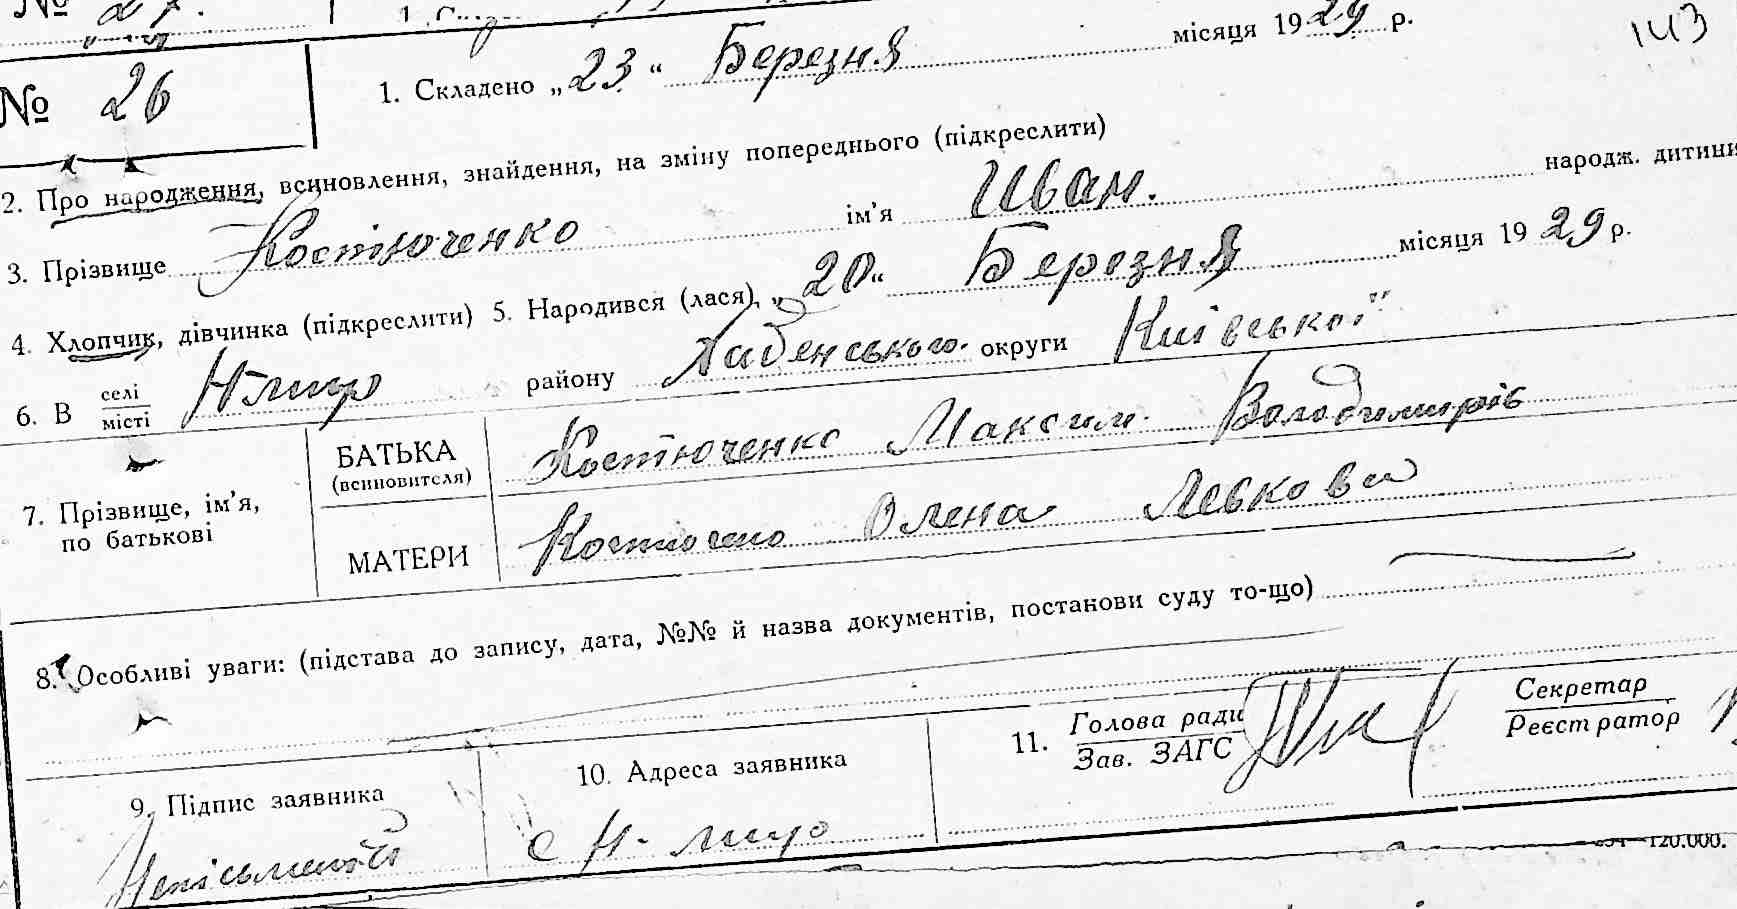 № 27.
143
№ 26
1. Складено „23“ Березня місяця 1929 р.
2. Про народження, всиновлення, знайдення, на зміну попереднього (підкреслити)
3. Прізвище Костюченко ім’я Иван. народж. дитини
4. Хлопчик, дівчинка (підкреслити) 5. Народився (лася) „20“ Березня місяця 1929 р.
6. В селі
місті
району Хабенського округи Київської
7. Прізвище, ім’я,
по батькові
БАТЬКА
(всиновителя)
Костюченко Максим Володимирів
МАТЕРИ
Олена Левкова
8. Особливі уваги: (підстава до запису, дата, №№ й назва документів, постанови суду то-що)
9. Підпис заявника
10. Адреса заявника
11. Голова ради
Зав. ЗАГС
Секретар
Реєстратор
120.000.